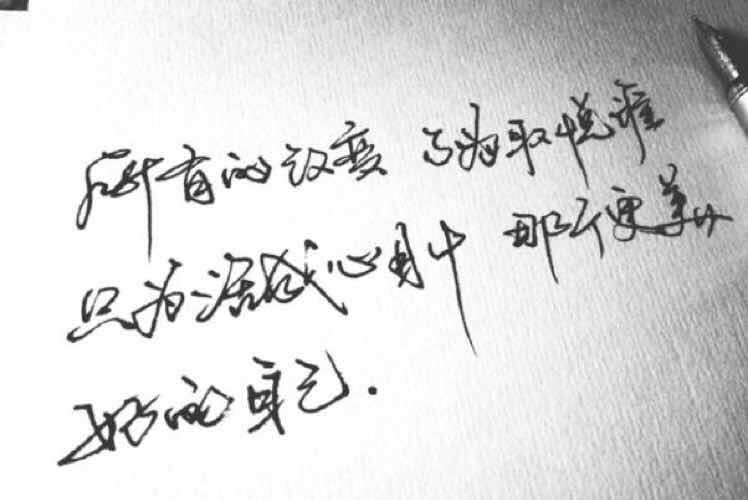 所有的改变 不为取悦谁
只为活成心目中 那个更美
好的自己.